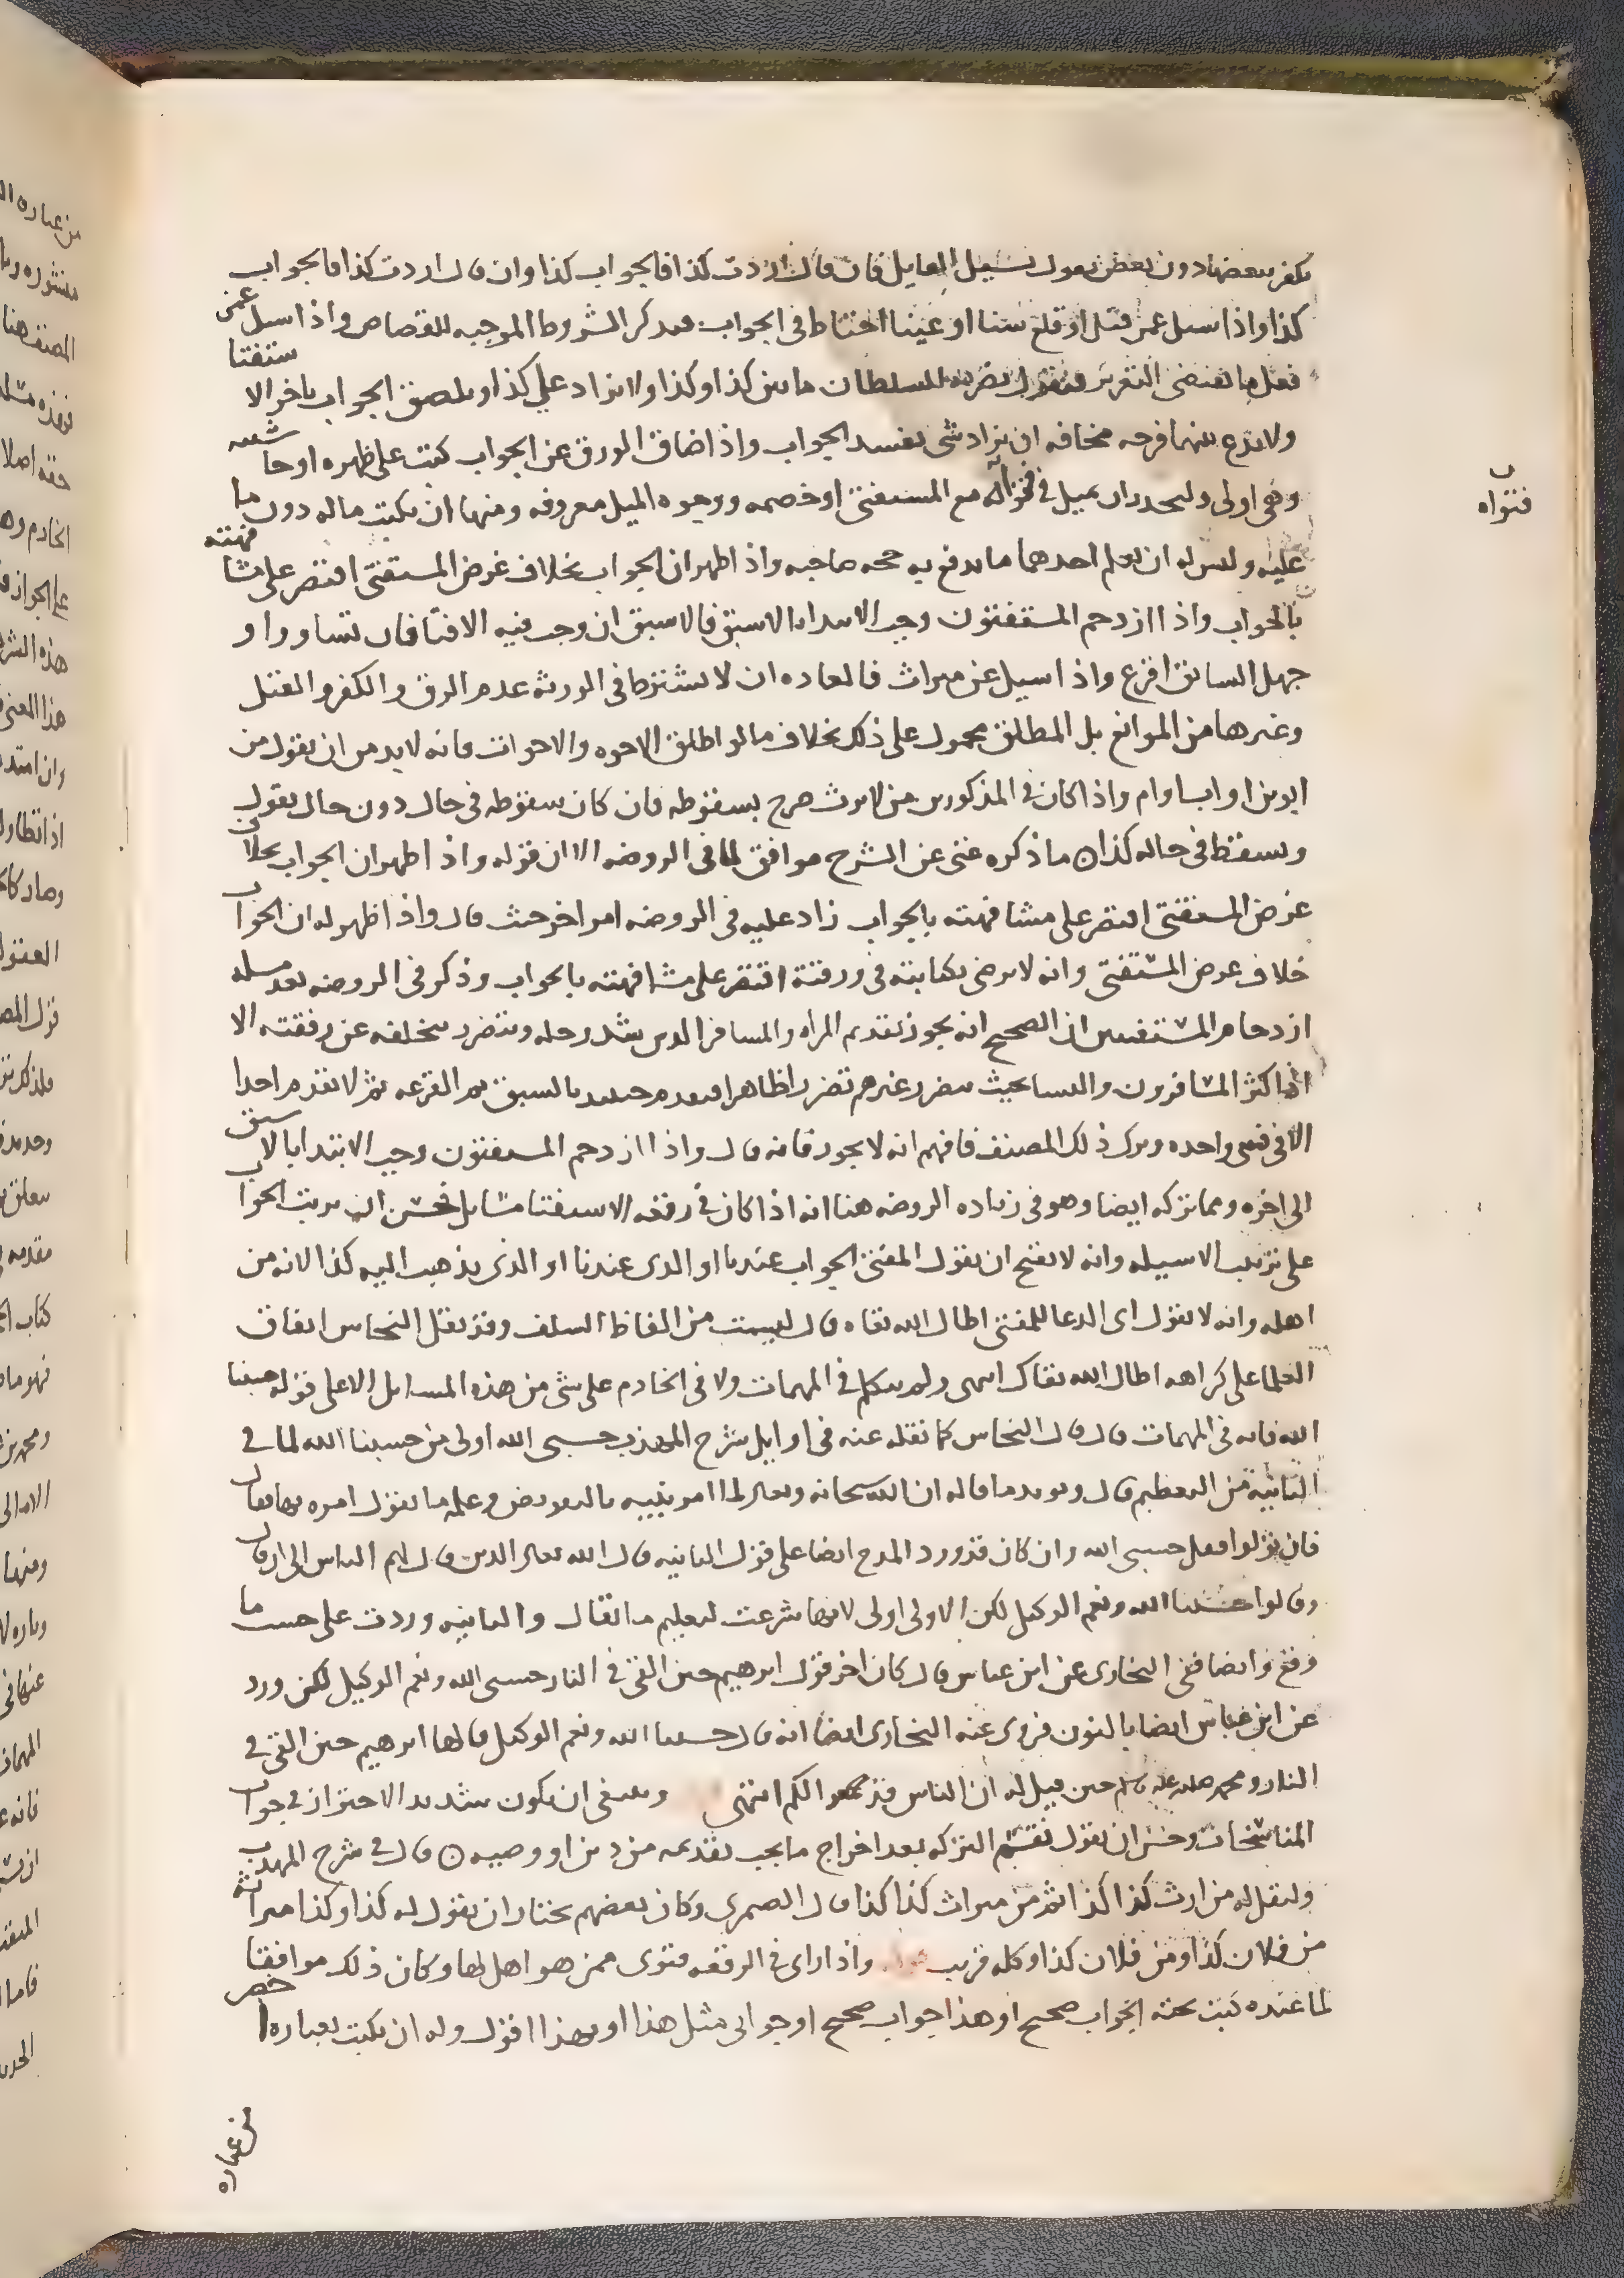 يكفر ببعضها دون بعض يقول يسيل القايل فان قال اردت كذا فالجواب كذا وان قال اردت كذا فالجواب
كذا واذا سيل عمن قتل او قلع سنا او عينا احتاط في الجواب فيذكر الشروط الموجبه للقصاص واذا سيل عمن
فعل ما يقتضى التعزير فيقول يضربه السلطان ما بين كذا وكذا ولا يزاد علي كذا ويلصق الجواب باخر الاستفتا
ولا يدع بينهما فرجه مخافه ان يزاد شى يفسد الجواب واذا ضاق الورق عن الجواب كتب على ظهره او حاشيته
وهي اولى وليحذر ان يميل في فتواه مع المستفتي او خصمه ووجوه الميل معروفه ومنها ان يكتب ماله دون ما
عليه وليس له ان يعلم احدهما ما يدفع به حجه صاحبه واذا ظهر ان الجواب بخلاف غرض المستفتي اقتصر على مشافهته
بالجواب واذا ازدحم المستفتون وجب الابتداء بالاسبق فالاسبق ان وجب فيه الافتا فان تساووا او
جهل السابق اقرع واذا سيل عن ميراث فالعاده ان لا يشترط في الورثه عدم الرق والكفر والقتل
وغيرها من الموانع بل المطلق محمول على ذلك بخلاف ما لو اطلق الاخوه والاخوات فانه لابد من ان يقول من
ابوين او اب او ام واذا كان في المذكورين من لا يرث صرح بسقوطه فان كان سقوطه في حال دون حال يقول
ويسقط في حاله كذا ۞ ما ذكره غني عن الشرح موافق لما في الروضه الا ان قوله واذا ظهر ان الجواب بخلاف
غرض المستفتي اقتصر على مشافهته بالجواب زاد عليه في الروضه امرا اخر حيث قال واذا ظهر له ان الجواب
خلاف غرض المستفتي وانه لا يرضى بكتابته في ورقته اقتصر على مشافهته بالجواب وذكر في الروضه بعد مسله
ازدحام المستفتيين ان الصحيح انه يجوز تقديم المراه والمسافر الذي شد رحله ويتضرر بتخلفه عن رفقته الا
اذا كثر المسافرون والنسا بحيث يتضرر غيرهم تضررا ظاهرا فيقدم حينيذ بالسبق ثم القرعه ثم لا يقدم احدا
الا في فتيى واحده وترك ذلك المصنف فافهم انه لا يجوز فانه قال واذا ازدحم المستفتون وجب الابتدا بالاسبق
الى اخره ومما تركه ايضا وهو في زياده الروضه هنا انه اذا كان في رقعه الاستفتا مسايل فحسن ان يرتب الجواب
على ترتيب الاسيله وانه لا يقبح ان يقول المفتي الجواب عندنا او الذي عندنا او الذي يذهب اليه كذا لانه من
اهله وانه لا يقول اي الدعا للمفتي اطال الله بقاه قال ليست من الفاظ السلف وقد نقل النحاس اتفاق
العلما على كراهه اطال الله بقاك انتهى ولم يتكلم في المهمات ولا في الخادم على شي من هذه المسايل الا على قوله حسبنا
الله فانه في المهمات قال قال النحاس كما نقله عنه في اوايل شرح المهذب حسبي الله اولى من حسبنا الله لما في
الثانية من التعظيم قال ويويد ما قاله ان الله سبحانه وتعالى لما امر نبييه بالتعويض وعلمه ما يقول امره بهما فقال
فان تولوا فقل حسبي الله وان كان قد ورد المدح ايضا على قول الثانيه قال الله تعالى الذين قال لهم الناس الى ان قال
وقالوا حسبنا الله ونعم الوكيل لكن الاولى اولى لانها شرعت لتعليم ما يقال والثانيه وردت على حسب ما
وقع وايضا ففي البخارى عن ابن عباس قال كان اخر قول ابرهيم حين القي في النار حسبي الله ونعم الوكيل لكن ورد
عن ابن عباس ايضا بالنون فروى عنه البخارى ايضا انه قال حسبنا الله ونعم الوكيل قالها ابرهيم حين القي في
النار ومحمد صلى الله عليه وسلم حين قيل له ان الناس قد جمعوا لكم انتهى وينبغى ان يكون شديد الاحتراز في جواب
المناسخات وحسن ان يقول تقسم التركه بعد اخراج ما يجب تقديمه من دين او وصيه ۞ قال في شرح المهذب
وليقل له من ارث كذا كذا ثم من ميراث كذا كذا قال الصيمرى وكان بعضهم يختار ان يقول له كذا وكذا ميراثه
من فلان كذا ومن فلان كذا وكله قريب واذا راى في الرقعه فتوى ممن هو اهل لها وكان ذلك موافقا
لما عنده كتب تحته الجواب صحيح او هذا جواب صحيح او جوابي مثل هذا او بهذا اقول وله ان يكتب بعباره اخصر
من عباره
فتواه